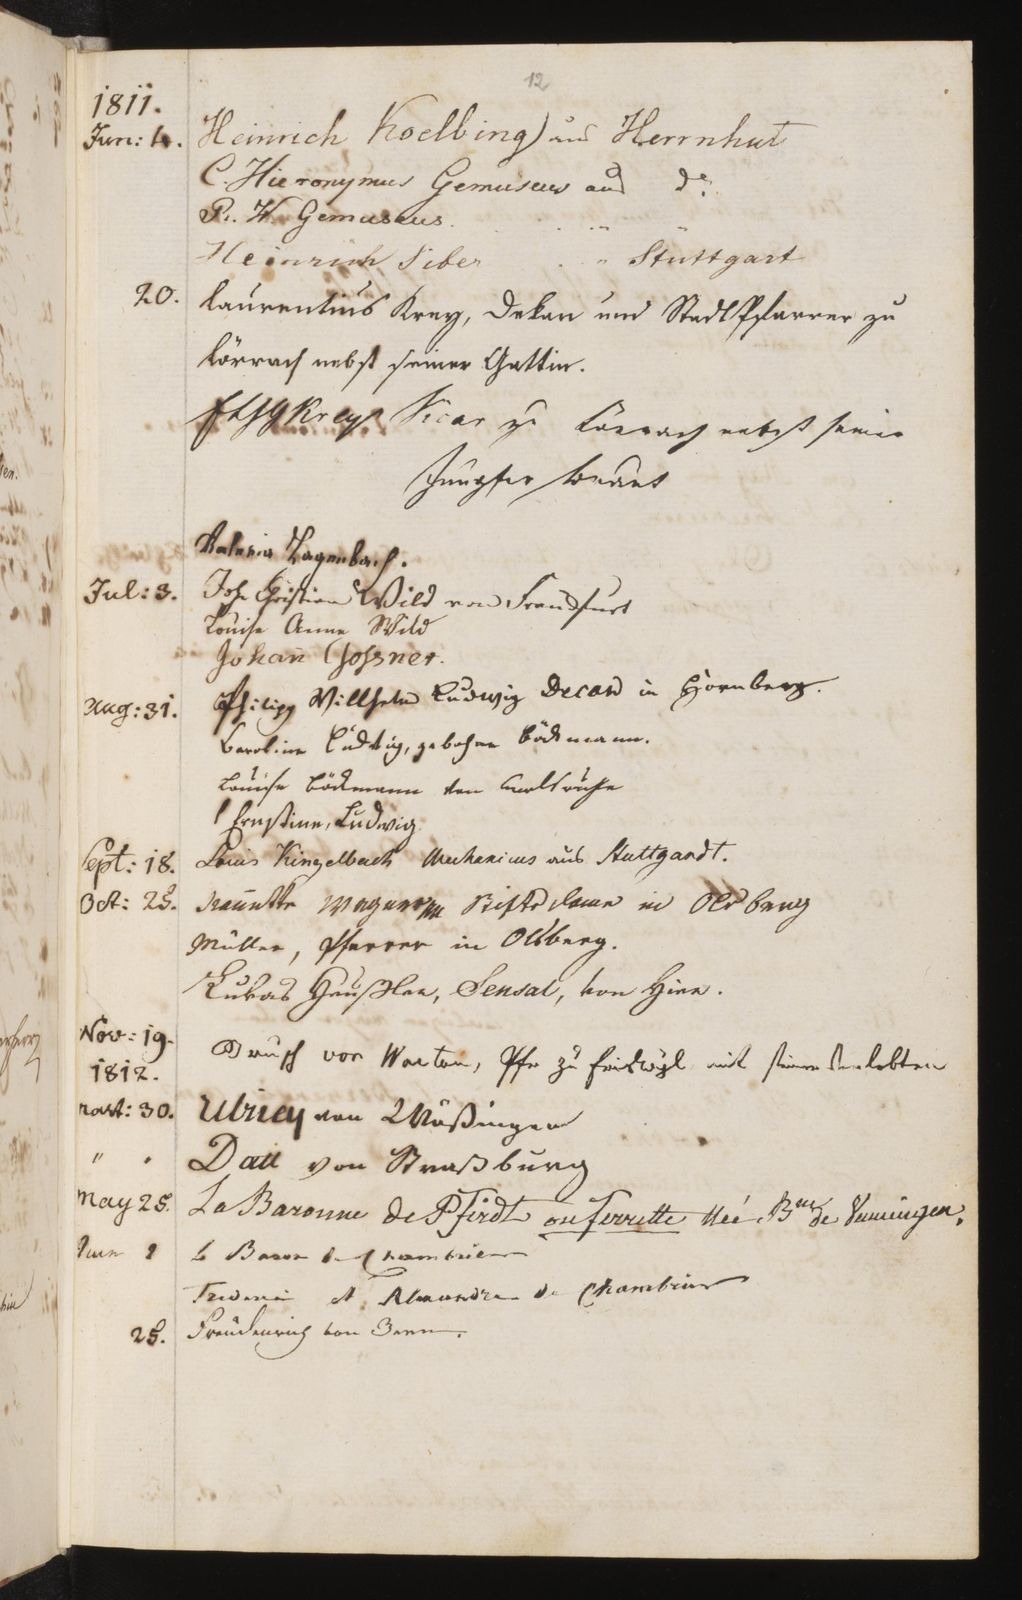 12
1811.
Jun: 4. Heinrich Koelbing) aus Herrnhut
C. Hieronymus Gemuseus aus do.
P. W. Gemuseus. . . "
Heinrich Siber . " Stuttgart
20. Laurentius Krey, Dekan und StadtPfarrer zu
Lörrach nebst seiner Gattin.
Krey. Vicar zu Lörrach nebst seiner
Jungfer braut
Valeria Hagenbach.
Jul: 3. Joh Christian Wild von Frankfurt
Louise Anna Wild
Johañ Gossner.
Aug: 31. Philipp Willhelm Ludwig Decan in Hornberg.
Caroline Ludwig, gebohrne Böckmann.
Louise Böckmann von Carlsruhe
Ernstine, Ludwig
Sept: 18. Louis Kinzelbach Mechanicus aus Stuttgardt.
Oct: 25. Nanette Stiftsdame in Olsberg
Müller, Pfarrer in Olsberg.
Lukas Häusler, Sensal, von Hier.
Nov: 19.
von Pfr zu mit seiner verlobten
1812.
Mart: 30. Ulrich von Mössingen
" " Datt von Straßburg
May 25. La Baronne de Pfirdt ou Ferrette Née Bne de
Jun 1 le Baron de Chambrier
Frederic et Alexandre de Chambrier
25. Freudenrich von Bern.